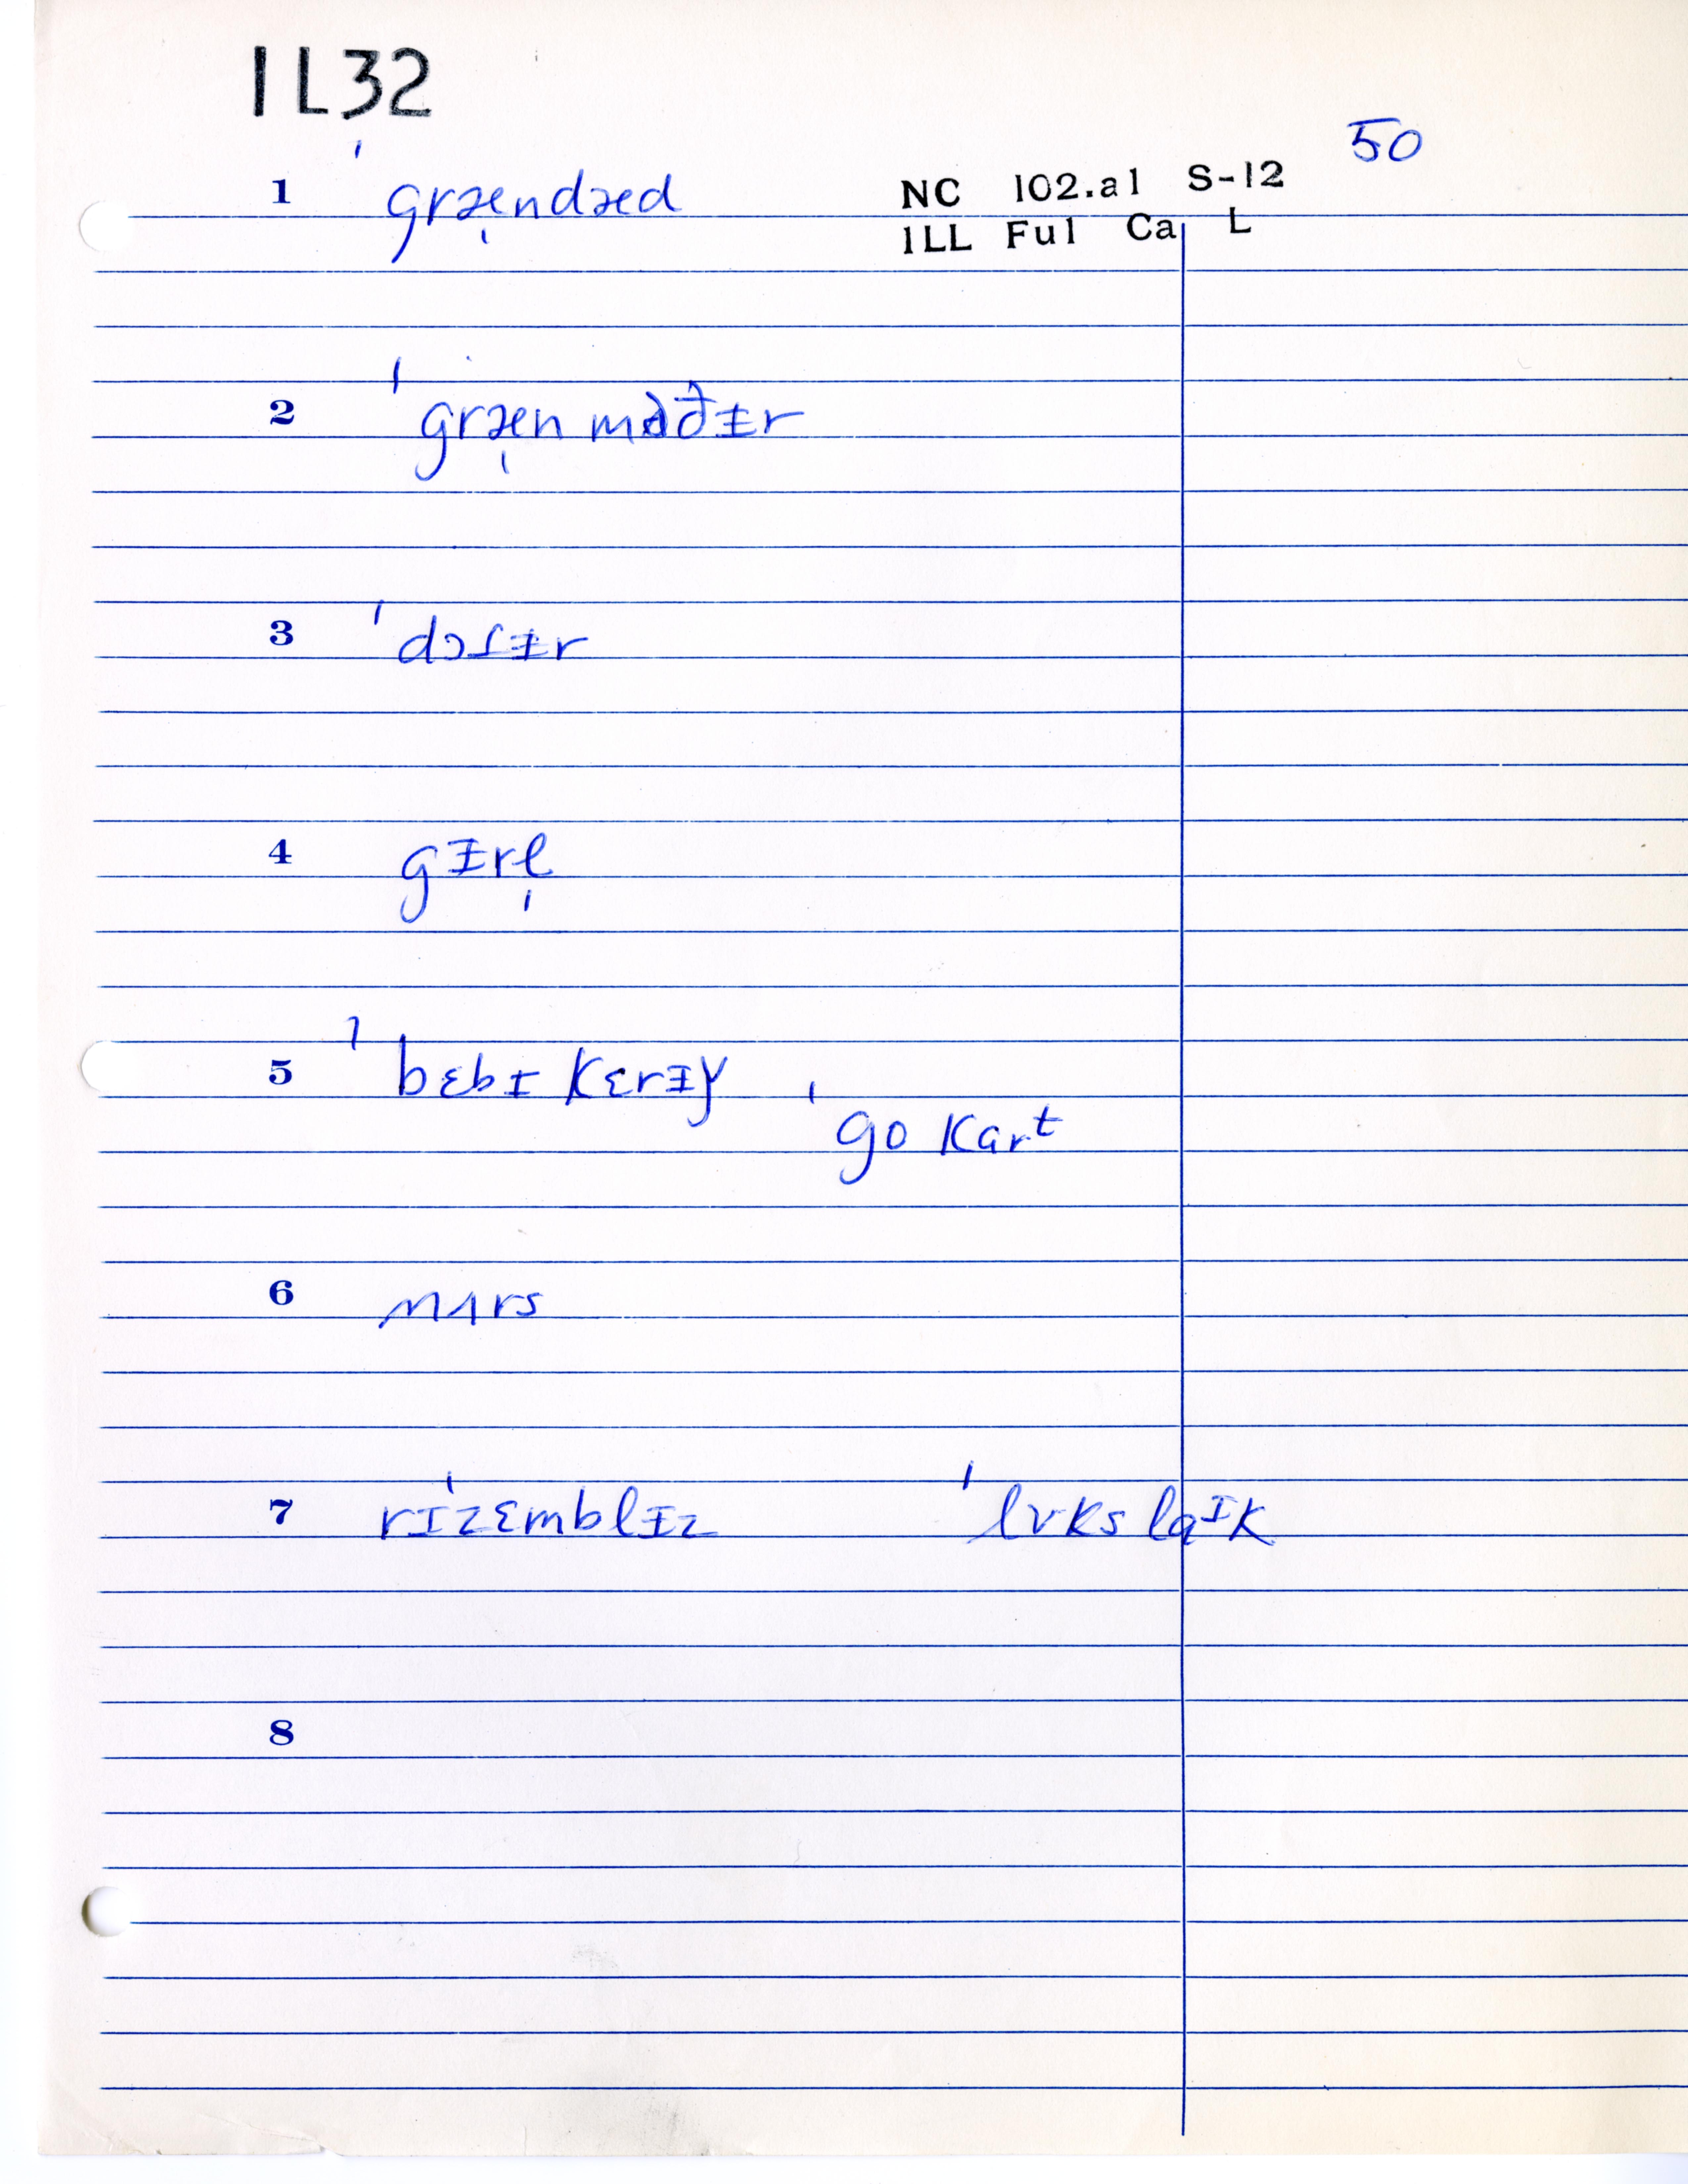 IL32
50
NC 102.a1 S-12
ILL Ful Ca L
1 ˈgræ̩ndæd
2 ˈgræ̩n məðɪ̵r
3 ˈdɔɾɪ̵r
4 gɪ̵rl̩
5 ˈbɛbɪ kɛrɪ̵ɣ ˈgo kart
6 nʌrs
7 rɪˈzɛmblɪ̵z ˈlʊks laɪk
8